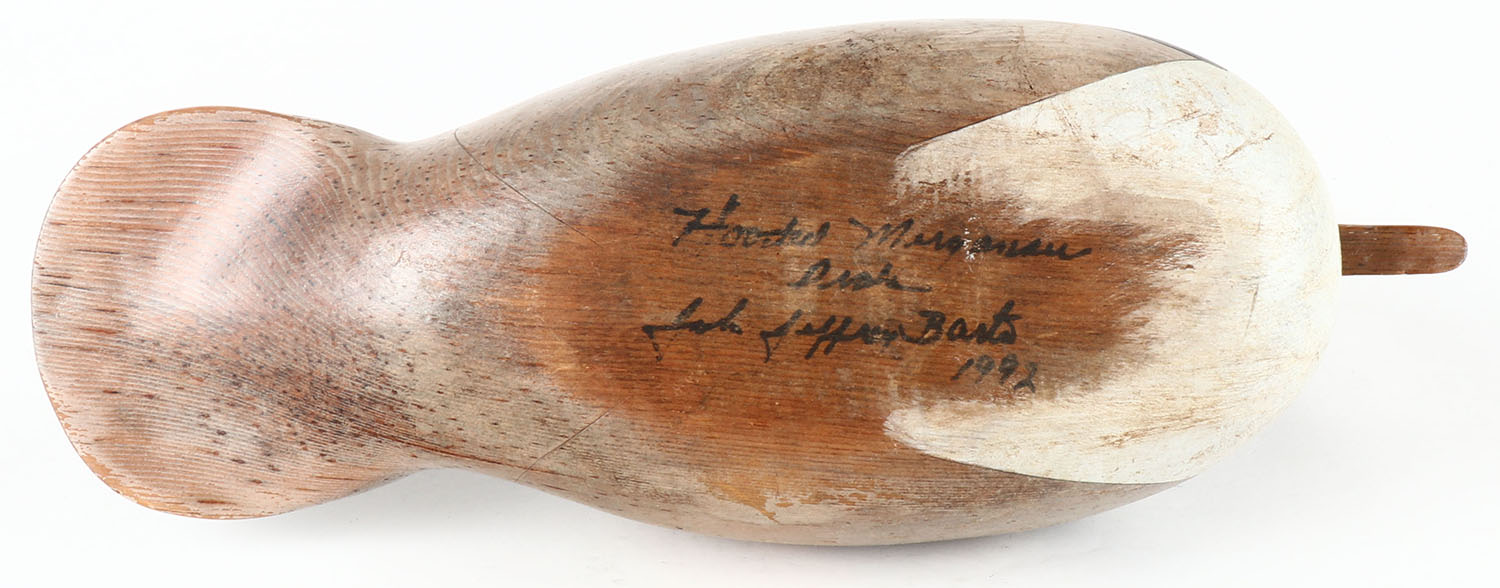 Hooded Merganser
John Jeffrey Barto
1992